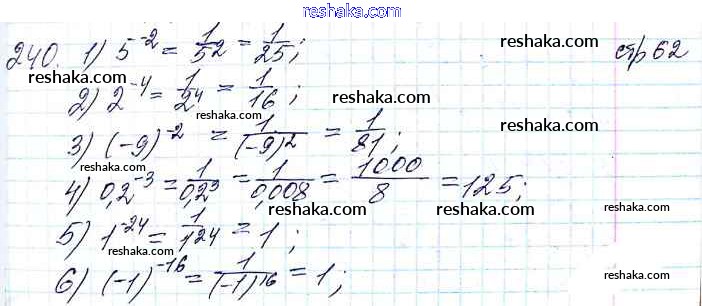 reshaka.com
240. 1) 5^-2 = 1/5^2 = 1/25; стр 62
reshaka.com reshaka.com
2) 2^-4 = 1/2^4 = 1/16;
reshaka.com
3) (-9)^-2 = 1/(-9)^2 = 1/81;
reshaka.com
reshaka.com
4) 0,2^-3 = 1/0,2^3 = 1/0,008 = 1000/8 = 125;
reshaka.com reshaka.com reshaka.com
5) 1^-24 = 1/1^24 = 1;
reshaka.com reshaka.com
6) (-1)^-16 = 1/(-1)^16 = 1;
reshaka.com